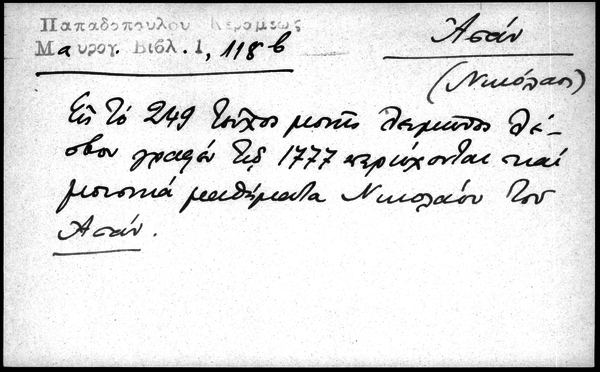 Παπαδοπουλου Κεραμεως
Μαυρογ. Βιβλ. Ι, 118 b
Ἀσάν
(Νικόλαος)
Εἰς τό 249 τεῦχος μονῆς Λειμῶνος Λέ-
σβου γραφέν τῷ 1777 περιέχονται καί
μουσικά μαθήματα Νικολάου τοῦ
Ἀσάν.